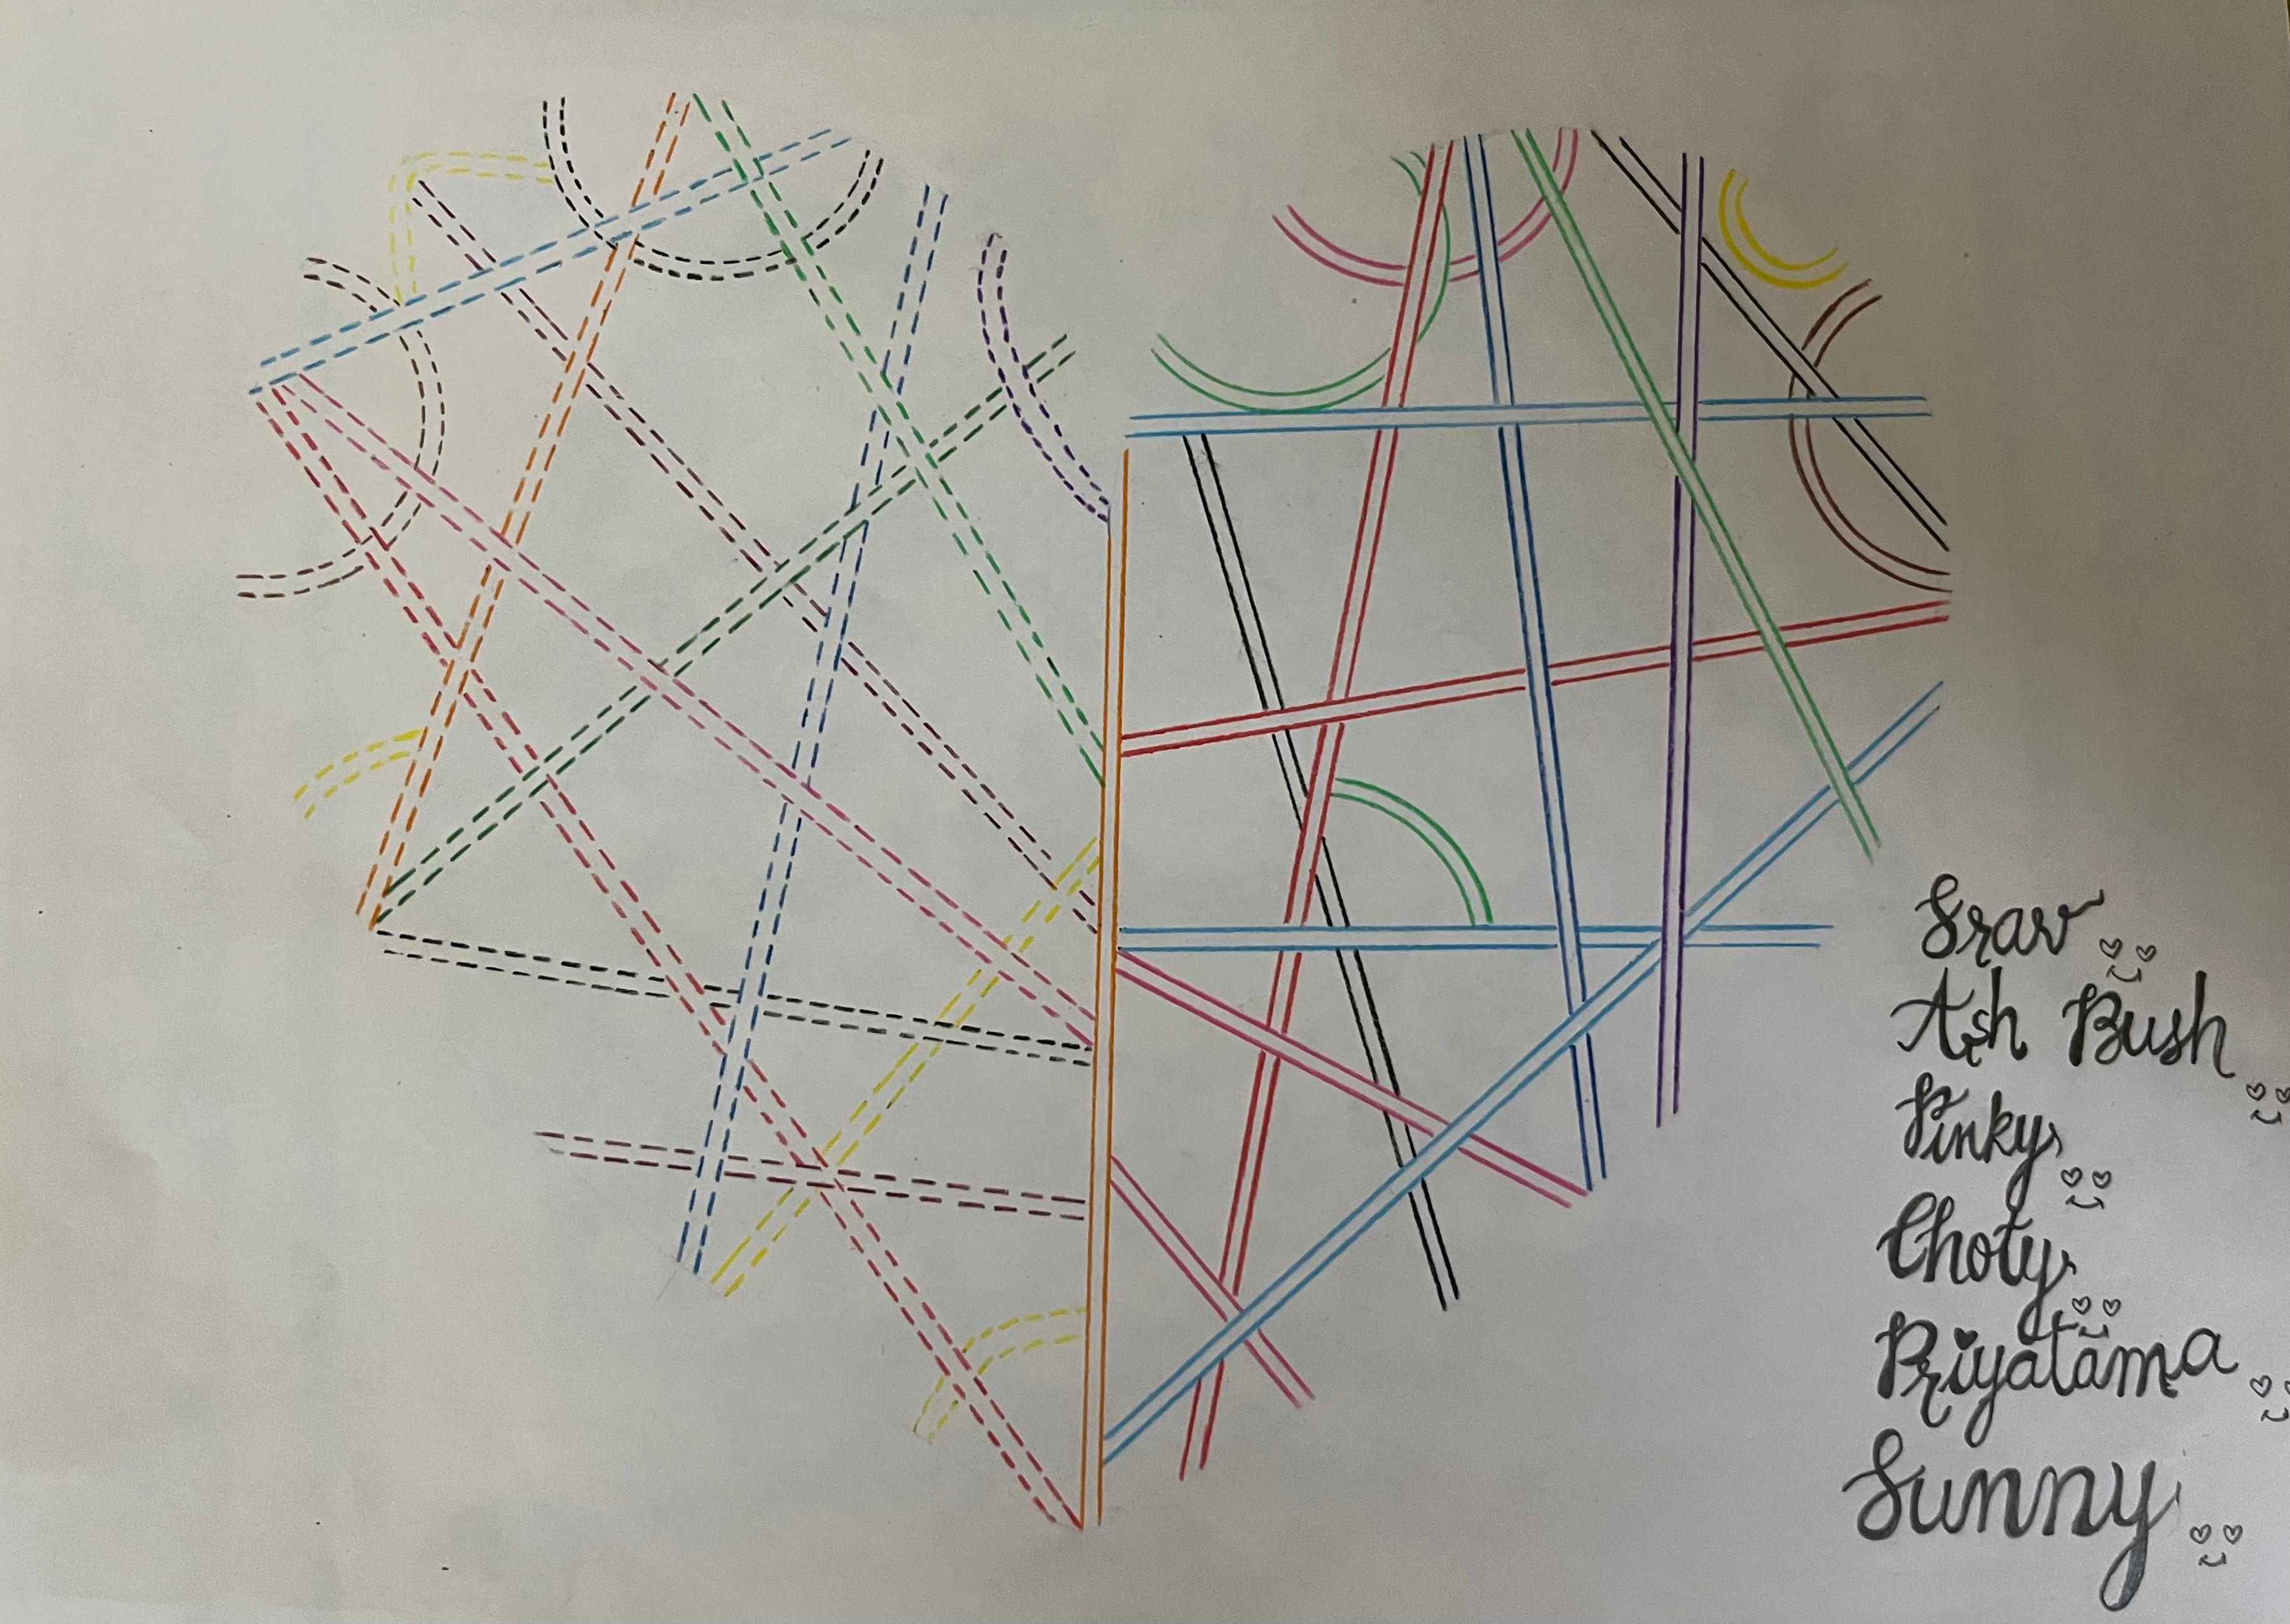 Srav
Ash Bush
Pinky
Choty
Priyatama
Sunny